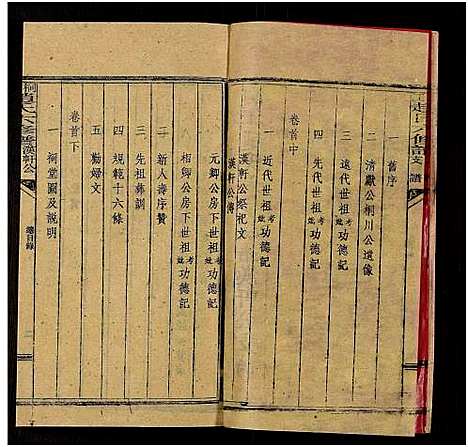 一 舊序
二 清獻公桐川公遺像
三 遠代世祖考妣功德記
四 先代世祖考妣功德記
卷首中
一 近代世祖考妣功德記
漢軒公傳
漢軒公祭祀文
元卿公房下世祖考妣功德記
相卿公房下世祖考妣功德記
二 新人壽序贊
三 先祖彝訓
四 規範十六條
五 勸婦文
卷首下
一 祠堂圖及説明
總目錄
二
漢軒公